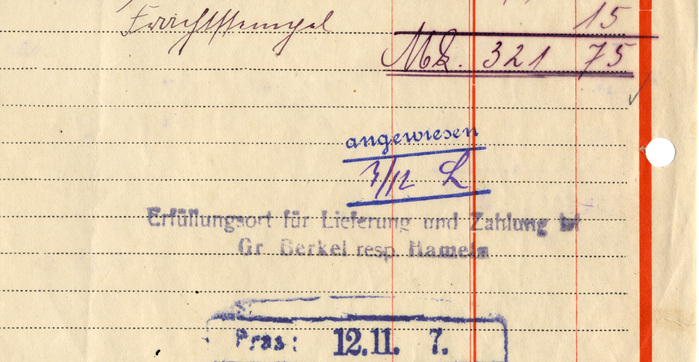 Frachtstempel 15
Mk. 321 75
angewiesen
3/12 L
Erfüllungsort für Lieferung und Zahlung ist
Gr. Berkel resp. Hameln
Präs: 12.11. 7.